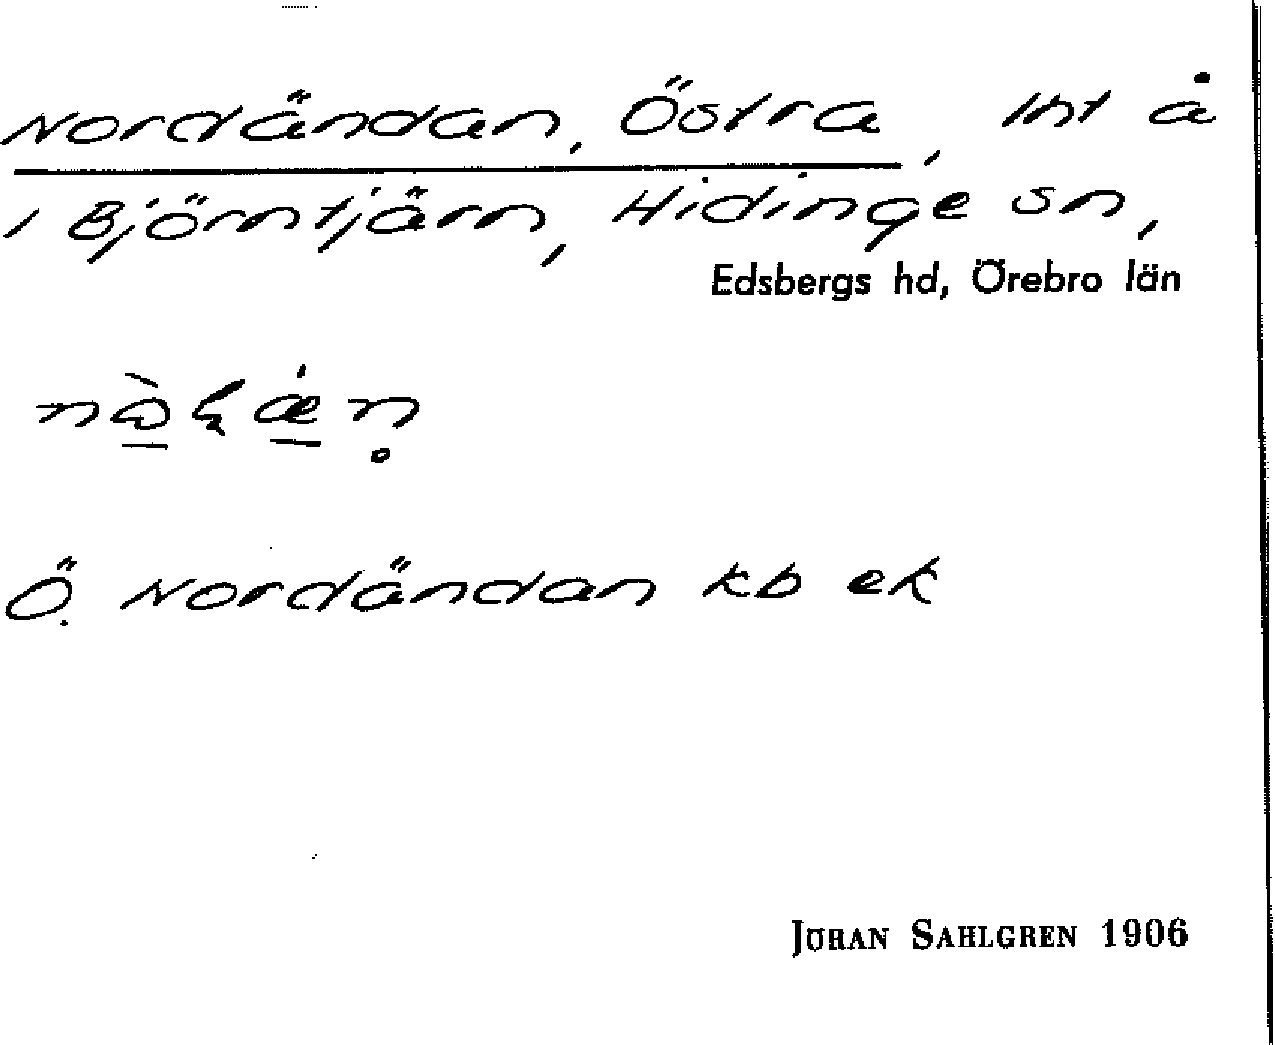 Nordändan, Östra, lht å
i Björntjärn, Hidinge sn,
Edsbergs hd, Örebro län
Ö. Nordändan kb ek
JÖRAN SAHLGREN 1906